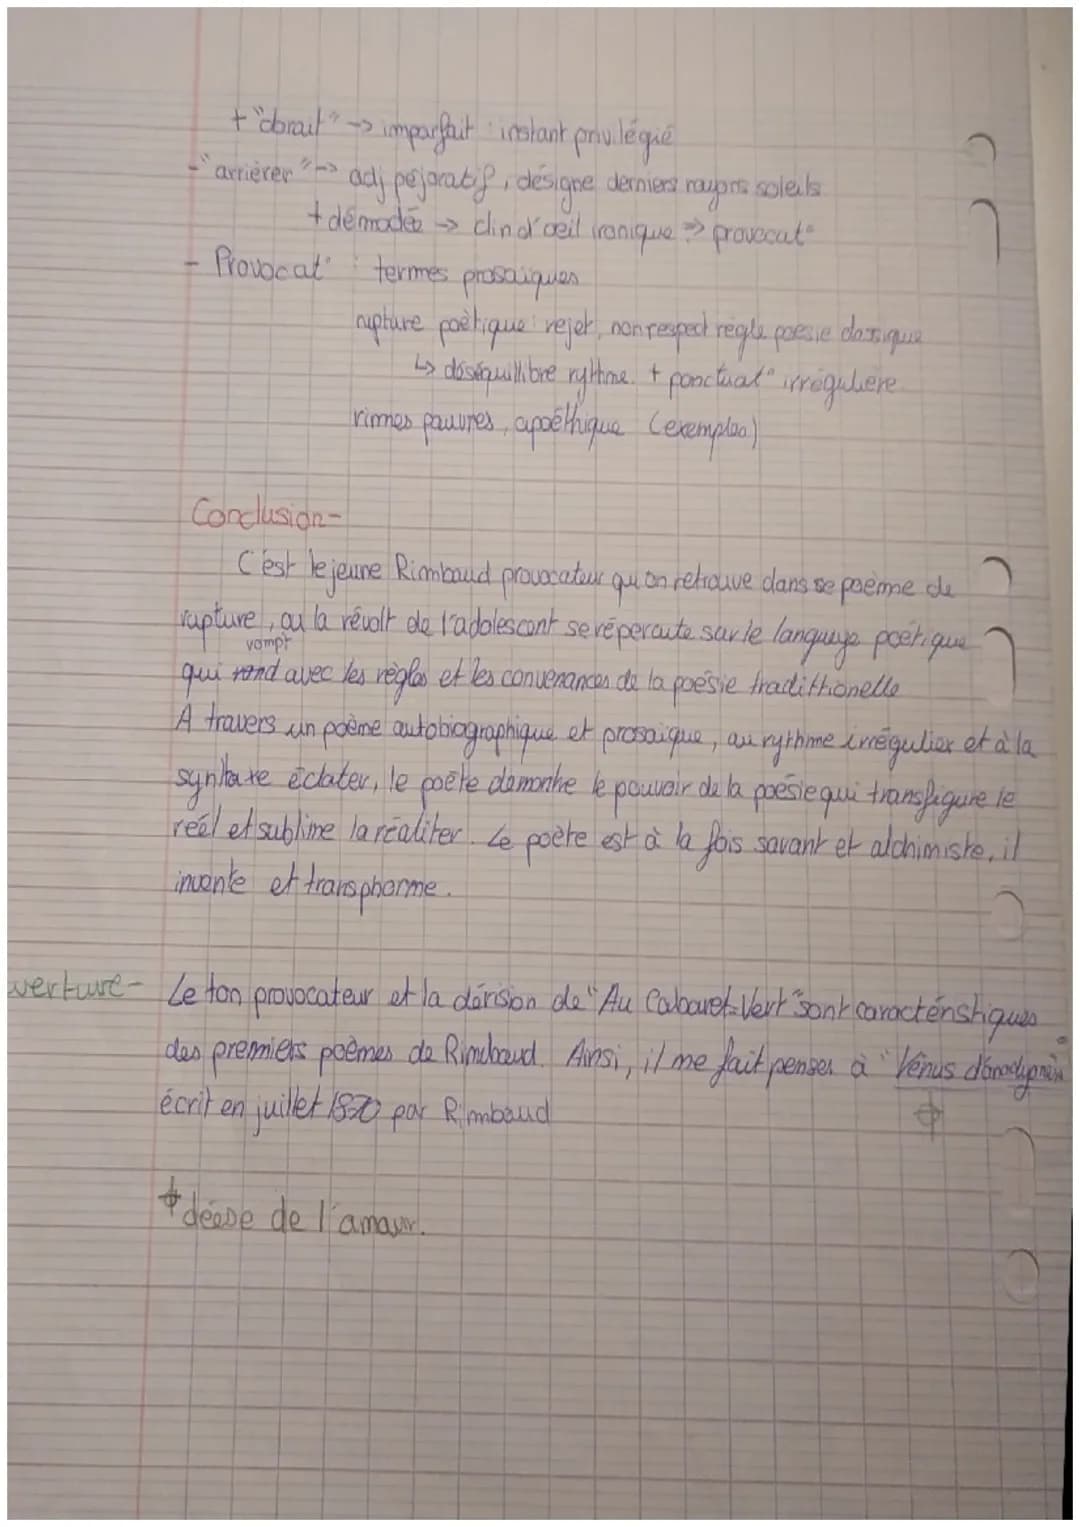 + "dorait" -> imparfait : instant privilégié
- "arriérer" -> adj péjoratif, désigne derniers rayons soleils
+ démodée -> clin d'œil ironique => provocat°
- Provocat° : termes prosaïques
rupture poètique : rejet, non respect règle poésie classique
↳ déséquillibre rythme + ponctuat° irrégulière
rimes pauvres, apoéthique (exemples)
Conclusion -
C'est le jeune Rimbaud provocateur qu'on retrouve dans se poème de
rupture, ou la révolt de l'adolescent se répercute sur le language poétique
rompt
qui rond avec les règles et les convenances de la poésie tradithionelle
A travers un poème autobiographique et prosaïque, au rythme irrégulier et à la
syntaxe éclater, le poète démontre le pouvoir de la poésie qui transfigure le
réel et sublime la réaliter. Le poète est à la fois savant et alchimiste, il
invente et transphorme.
verture - Le ton provocateur et la dérision de "Au Cabaret-Vert" sont caractéristiques
des premiers poèmes de Rimbaud. Ainsi, il me fait penser à "Vénus d'anadyomène
écrit en juillet 1870 par Rimbaud
déesse de l'amour.